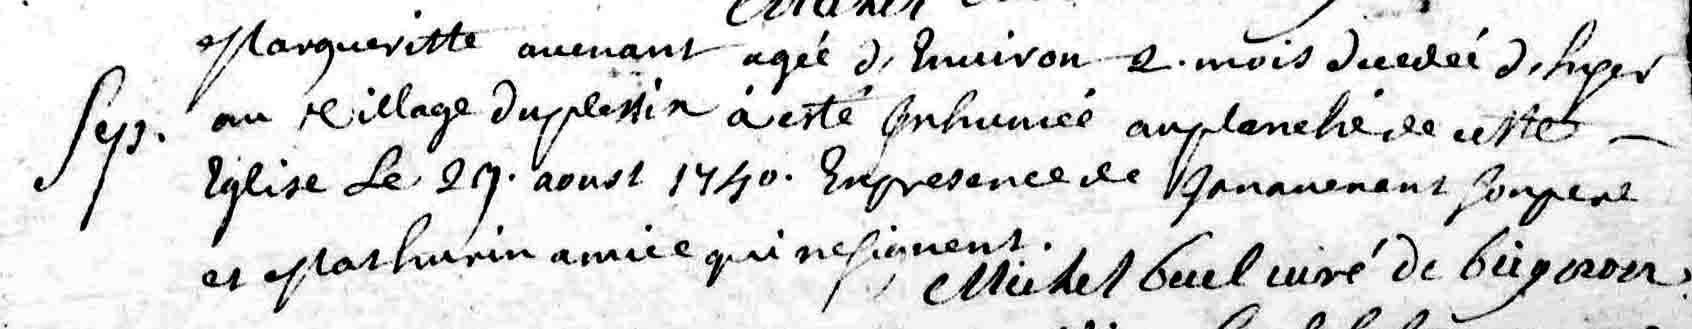 Margueritte auenant agée d'Enuiron 2. mois decedeé d'hyer
Sep. au Village duplessix à esté Inhumeé auplanché de cette
Eglise Le 29. aoust 1740. En presence de Jan auenant son pere
et Mathurin amice qui ne signent.
Michel buel curé de bignon